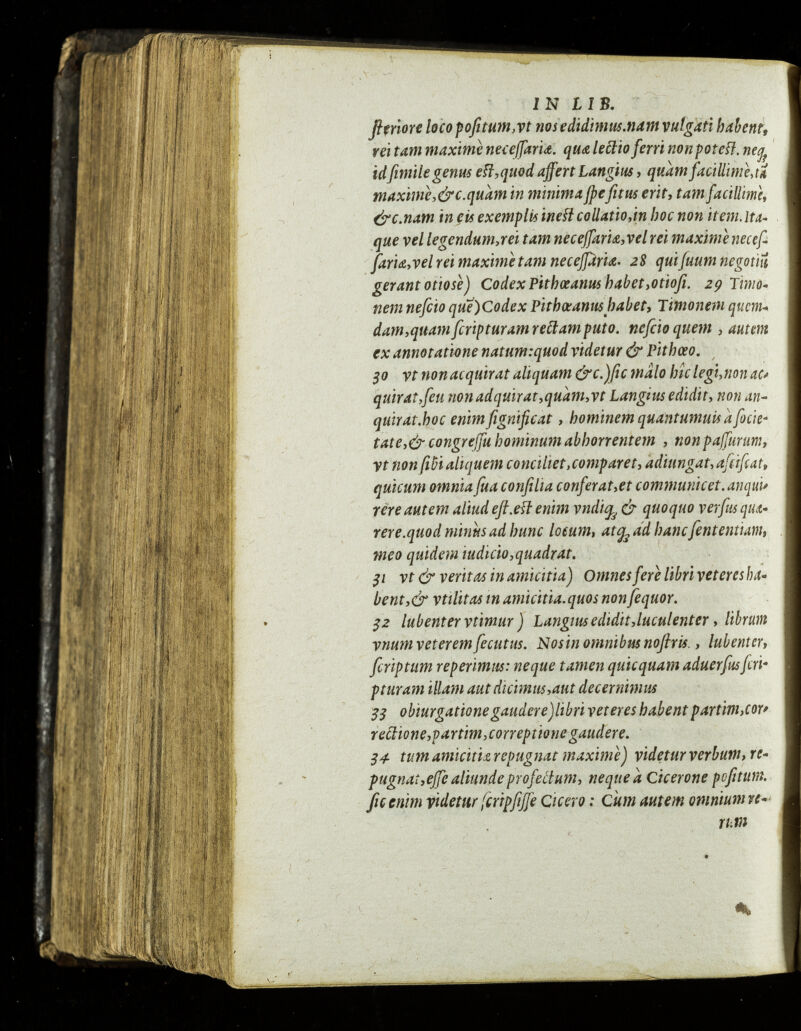 IN LIB.
ſteriore loco poſitum,vt nos edidimus.nam vulgati habent,
rei tam maximè neceſſariæ. quæ lectio ferri non poteſt. neq́
id ſimile genus eſt,quod affert Langius, quàm facillimè,tũ
maximè,&c.quàm in minima ſpe ſitus erit, tam facillimè,
&c.nam in eis exemplis ineſt collatio,in hoc non item.Ita-
que vel legendum,rei tam neceſſariæ,vel rei maximè neceſ-
ſariæ,vel rei maximè tam neceſſariæ. 28 qui ſuum negotiũ
gerant otiosè) Codex Pithœanus habet,otioſi. 29 Timo-
nem neſcio quẽ) Codex Pithœanus habet, Timonem quem-
dam,quam ſcripturam rectam puto. neſcio quem, autem
ex annotatione natum:quod videtur & Pithœo.
30 vt non acquirat aliquam &c.)ſic malo hîc legi,non ac-
quirat,ſeu non adquirat,quàm,vt Langius edidit, non an-
quirat.hoc enim ſignificat, hominem quantumuis à ſocie-
tate,& congreſſu hominum abhorrentem, non paſſurum,
vt non ſibi aliquem conciliet,comparet, adiungat, aſciſcat,
quicum omnia ſua conſilia conferat,et communicet.anqui-
rere autem aliud eſt.eſt enim vndiq́ & quoquo verſus quæ-
rere.quod minùs ad hunc locum, atq́ ad hanc ſententiam,
meo quidem iudicio,quadrat.
31 vt & veritas in amicitia) Omnes ferè libri veteres ha-
bent,& vtilitas in amicitia.quos non ſequor.
32 lubenter vtimur) Langius edidit,luculenter, librum
vnum veterem ſecutus. Nos in omnibus noſtris, lubenter,
ſcriptum reperimus: neque tamen quicquam aduerſus ſcri-
pturam illam aut dicimus,aut decernimus
33 obiurgatione gaudere)libri veteres habent partim,cor-
rectione,partim,correptione gaudere.
34 tum amicitiæ repugnat maximè) videtur verbum, re-
pugnat,eſſe aliunde profectum, neque à Cicerone poſitum.
ſic enim videtur ſcripſiſſe Cicero: Cùm autem omnium re-
rum